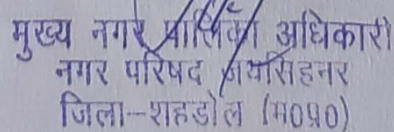 मुख्य नगर पालिका अधिकारी
नगर परिषद जयसिंहनर
जिला-शहडोल (म०प्र०)